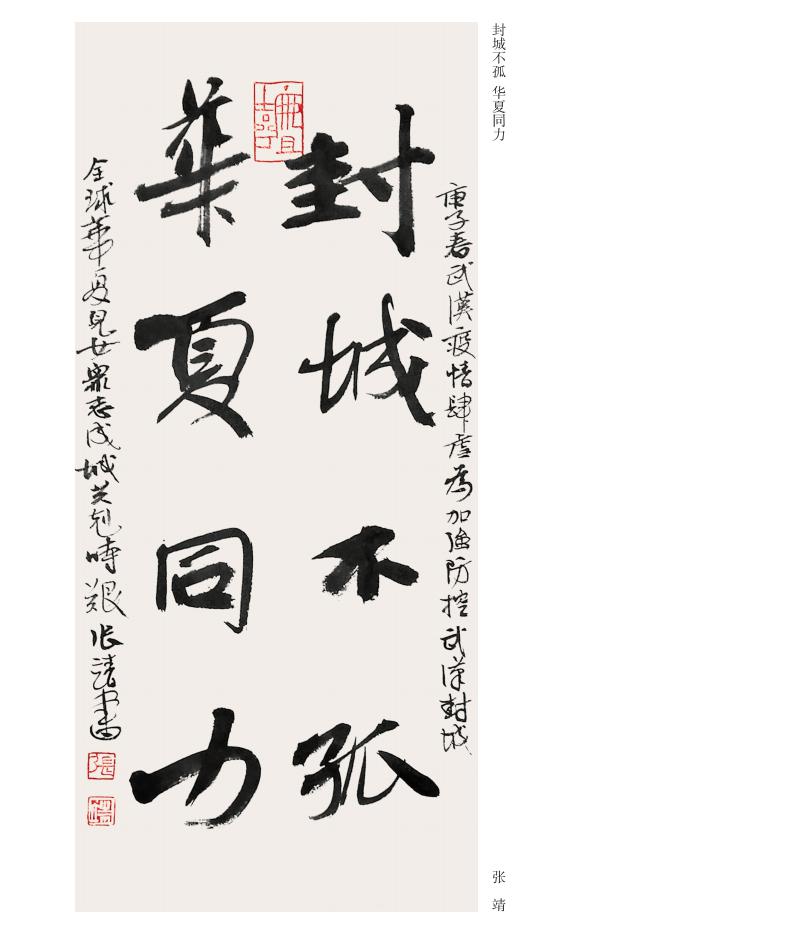 封城不孤 华夏同力
庚子春武漢疫情肆虐為加強防控武漢封城
封城不孤
華夏同力
全球華夏兒女眾志成城共克時艱 張靖書
張
靖
张 靖